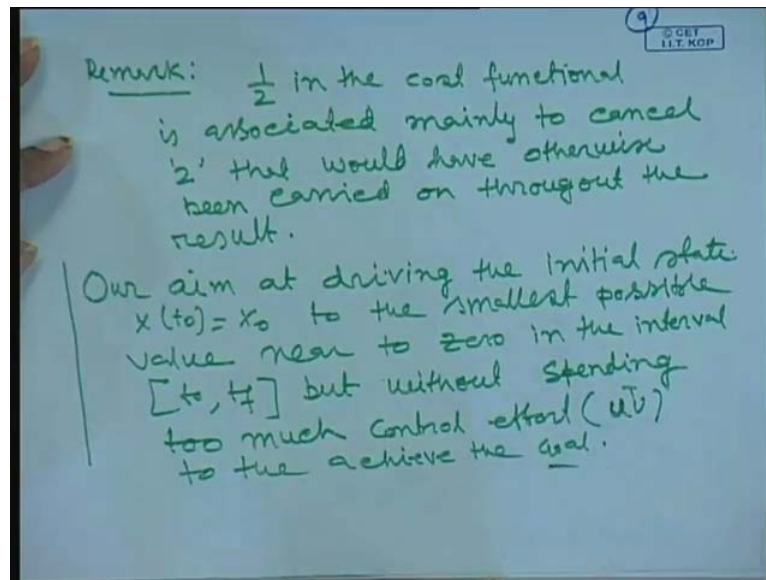 9
© CET
I.I.T. KGP
Remark: 1/2 in the cost functional
is associated mainly to cancel
'2' that would have otherwise
been carried on througout the
result.
Our aim at driving the initial state
x(t0) = x0 to the smallest possible
value near to zero in the interval
[t0, tf] but without spending
too much control effort (uᵀu)
to the achieve the goal.